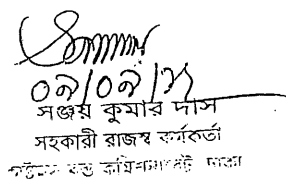 ০৯/০৯/২১
সঞ্জয় কুমার দাস
সহকারী রাজস্ব কর্মকর্তা
কাস্টমস বন্ড কমিশনারেট ঢাকা